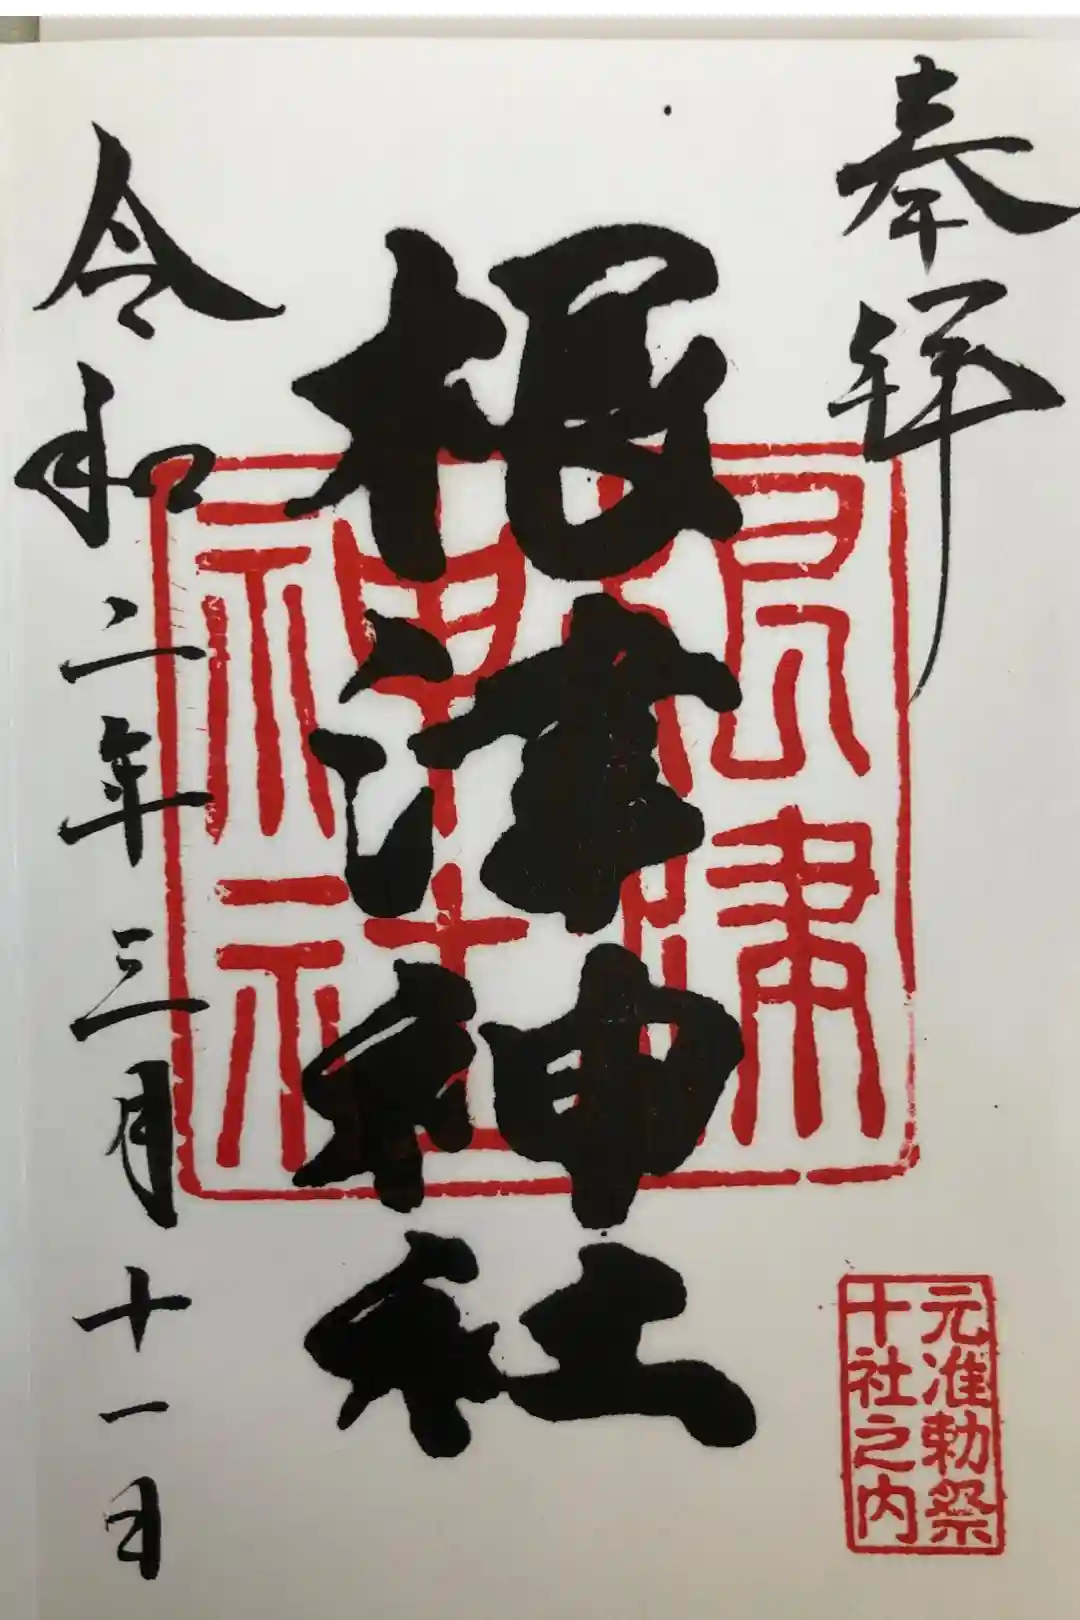 奉拝
根津神社
根津
神社
令和二年三月十一日
元准勅祭
十社之内